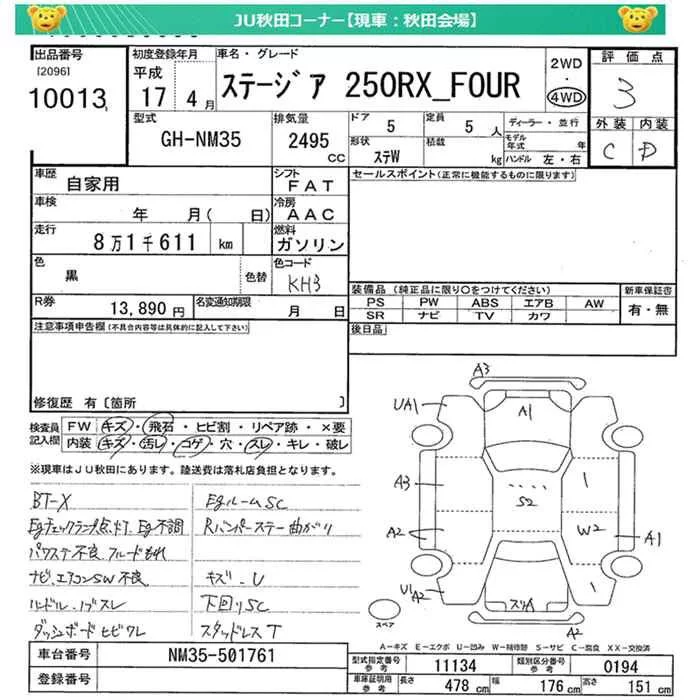 JU秋田コーナー【現車：秋田会場】
出品番号
[2096]
10013
初度登録年月
平成
17 4月
車名・グレード
ステージア 250RX_FOUR
2WD
・
4WD
評価点
3
外装 内装
C D
型式
GH-NM35
排気量
2495
CC
ドア
5
定員
5 人
形状
ステW
積載
kg
ディーラー・並行
モデル年式 年
ハンドル 左・右
車歴
自家用
シフト
FAT
セールスポイント(正常に機能するものに限ります)
車検
年 月( 日)
冷房
AAC
走行
8万1千611 km
燃料
ガソリン
色
黒
色替
色コード
KH3
装備品 (純正品に限り○をつけてください)
PS PW ABS エアB AW
SR ナビ TV カワ
新車保証書
有・無
R券
13,890円
名変通知期限
月 日
後日品
注意事項申告欄(不具合内容等は具体的に記入して下さい)
修復歴 有〔箇所 〕
検査員記入欄
FW キズ・飛石・ヒビ割・リペア跡・×要
内装 キズ・汚レ・コゲ・穴・スレ・キレ・破レ
※現車はJU秋田にあります。陸送費は落札店負担となります。
BT-X
Egチェックランプ点灯 Eg不調
パワステ不良、フルードもれ
ナビ、エアコンSW不良
ハンドル・ノブスレ
ダッシュボードヒビワレ
EgルームSC
Rバンパーステー曲がり
キズ・U
下回りSC
スタッドレスT
A3
UA1
A1
A3
S2
1
A2
W2
A1
U1
A2
1
スリA
A2
スペア
A－キズ E－エクボ U－凹み W－補修跡 S－サビ C－腐食 XX－交換済
車台番号
NM35-501761
登録番号
型式指定番号
参考
11134
類別区分番号
参考
0194
車庫証明用
参考
長さ
478 cm
幅
176 cm
高さ
151 cm